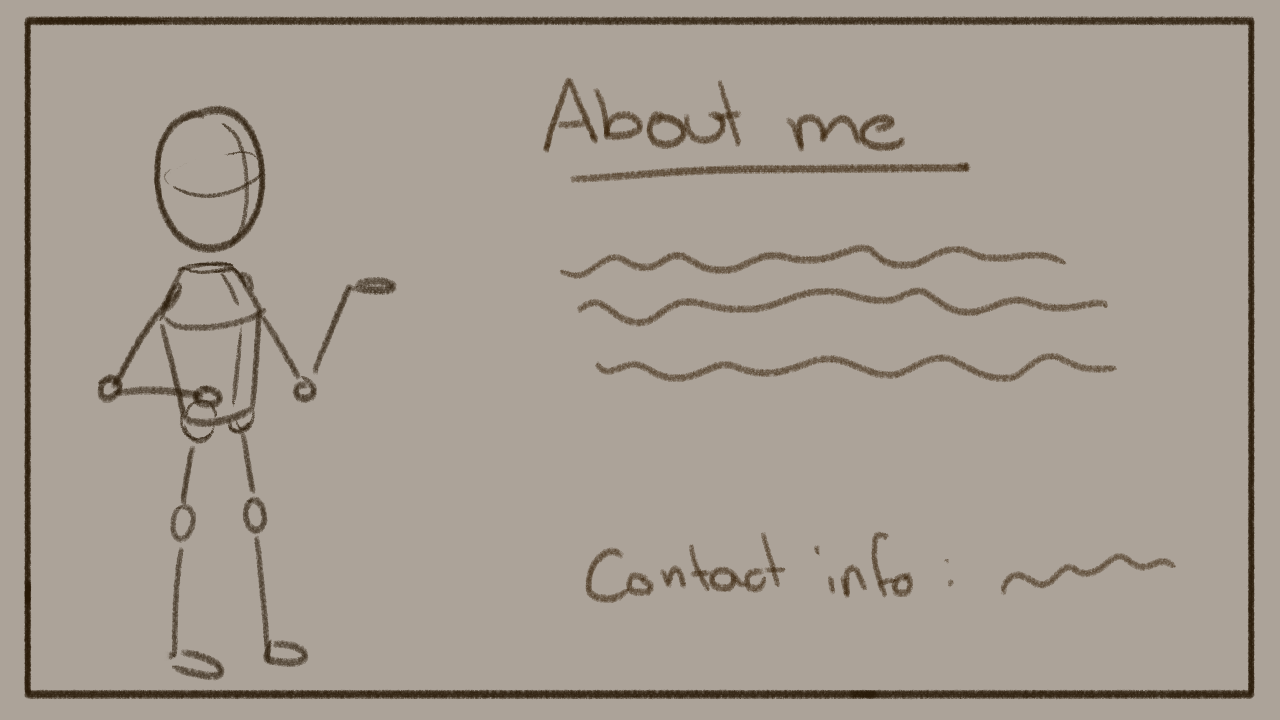 About me
Contact info :